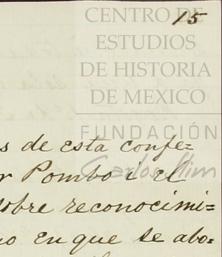 15
CENTRO DE
ESTUDIOS
DE HISTORIA
DE MEXICO
FUNDACIÓN
Carlos Slim
s de esta confe=
r Pombo i el
sobre reconocimi=
o en que se abo=